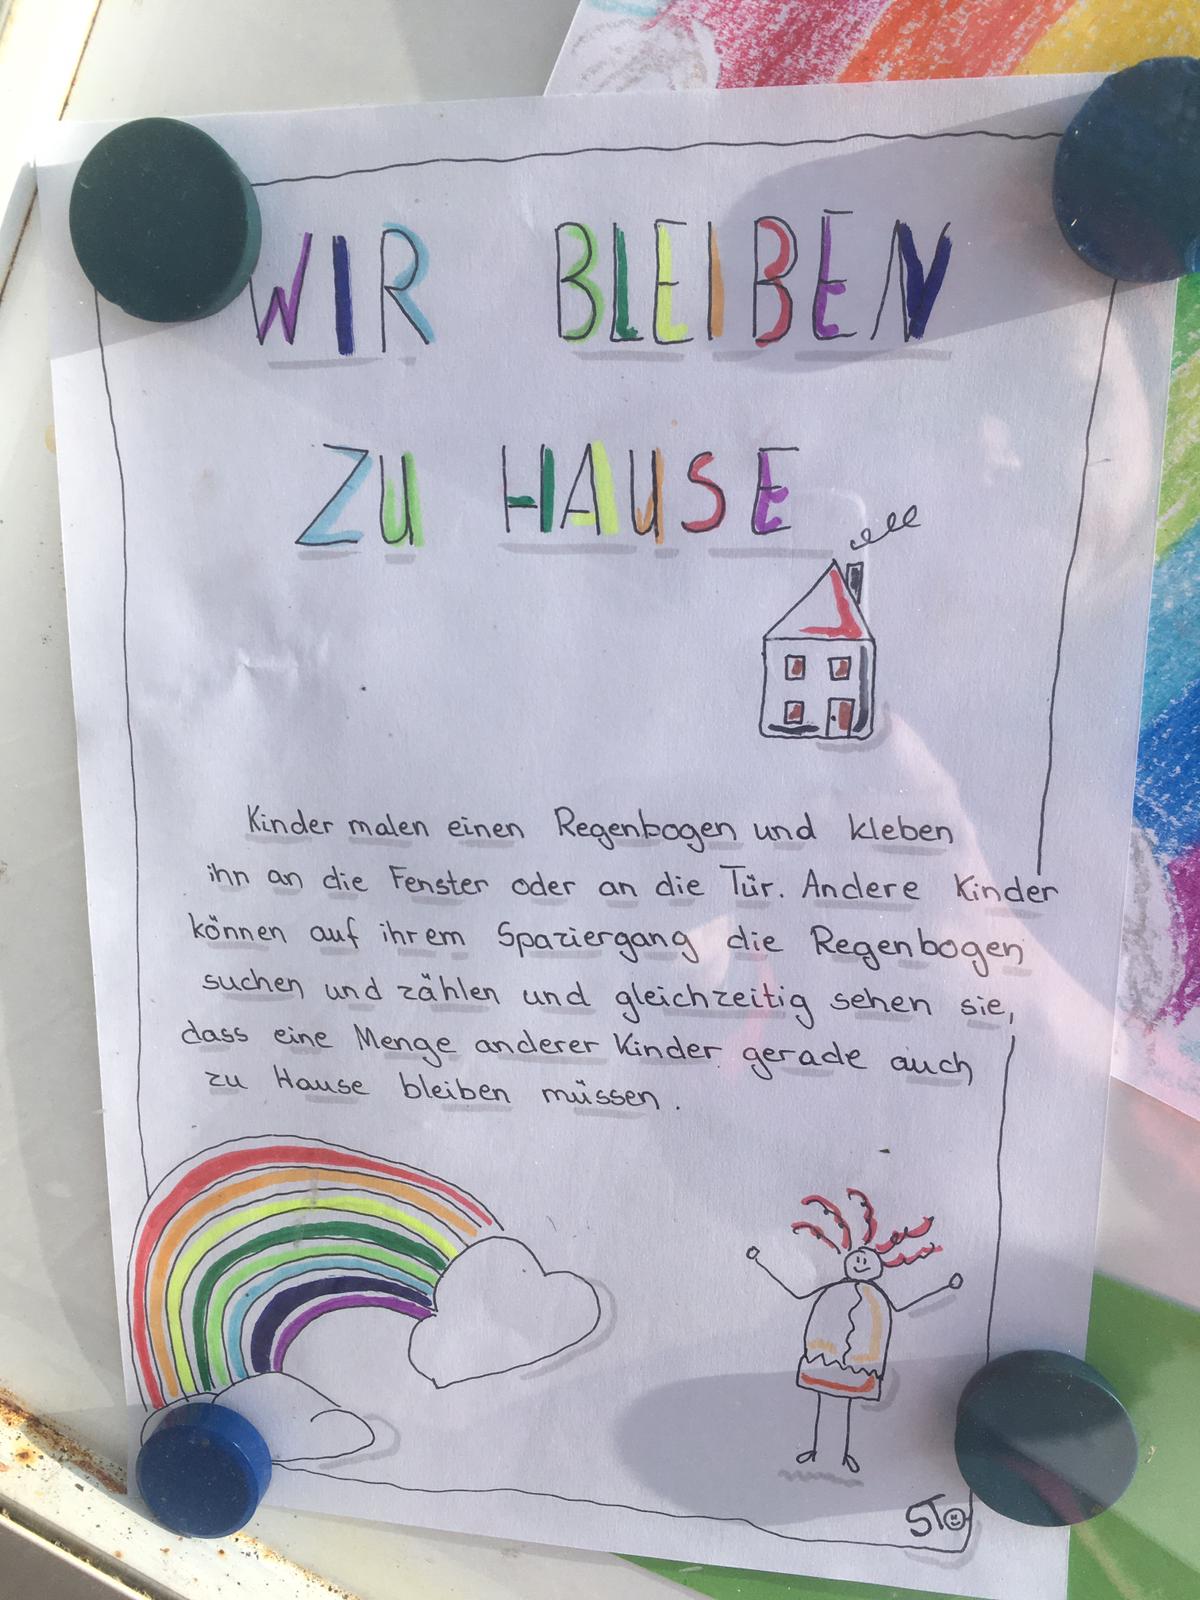 WIR BLEIBEN
ZU HAUSE
Kinder malen einen Regenbogen und kleben
ihn an die Fenster oder an die Tür. Andere Kinder
können auf ihrem Spaziergang die Regenbogen
suchen und zählen und gleichzeitig sehen sie,
dass eine Menge anderer Kinder gerade auch
zu Hause bleiben müssen.
ST